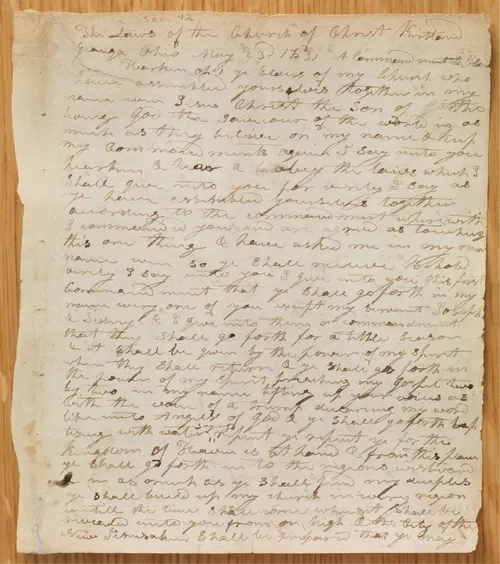 Sec. 42
The Laws of the Church of Christ Kirtland
Geauga Ohio May 23d 1831 A Commandment to the Elders
Hearken O ye Elders of my Church who
have assembled yourselves together in my
name even Jesus Christ the Son of the
living God the Saviour of the world in as
much as they believe on my name & keep
my Commandments again I say unto you
hearken & hear & obey the laws which I
Shall give unto you for verily I say as
ye have assembled yourselves together
according to the commandment wherewith
I commanded you and are agreed as touching
this one thing & have asked me in my
name even so ye Shall receive Behold
verily I say unto you I give unto you this first
Commandment that ye Shall go forth in my
name every one of you except my Servant Joseph
& Sidney & I give unto them a commandment
that they Shall go forth for a little Season
& it Shall be given by the power of my Spirit
when they Shall return & ye Shall go forth in
the power of my Spirit preaching my Gospel two
by two in my name lifting up your voices as
with the voice of a trump declaring my word
like unto Angels of God & ye Shall go forth bap
tizing with water saying repent ye repent ye for the
Kingdom of Heaven is at hand & from this place
ye Shall go forth in to the regions westward
& in as much as ye Shall find my disciples
ye Shall build up my church in every region
untill the time Shall come when it Shall be
revealed unto you from on high & the City of the
New Jerusalem Shall be prepared that ye may